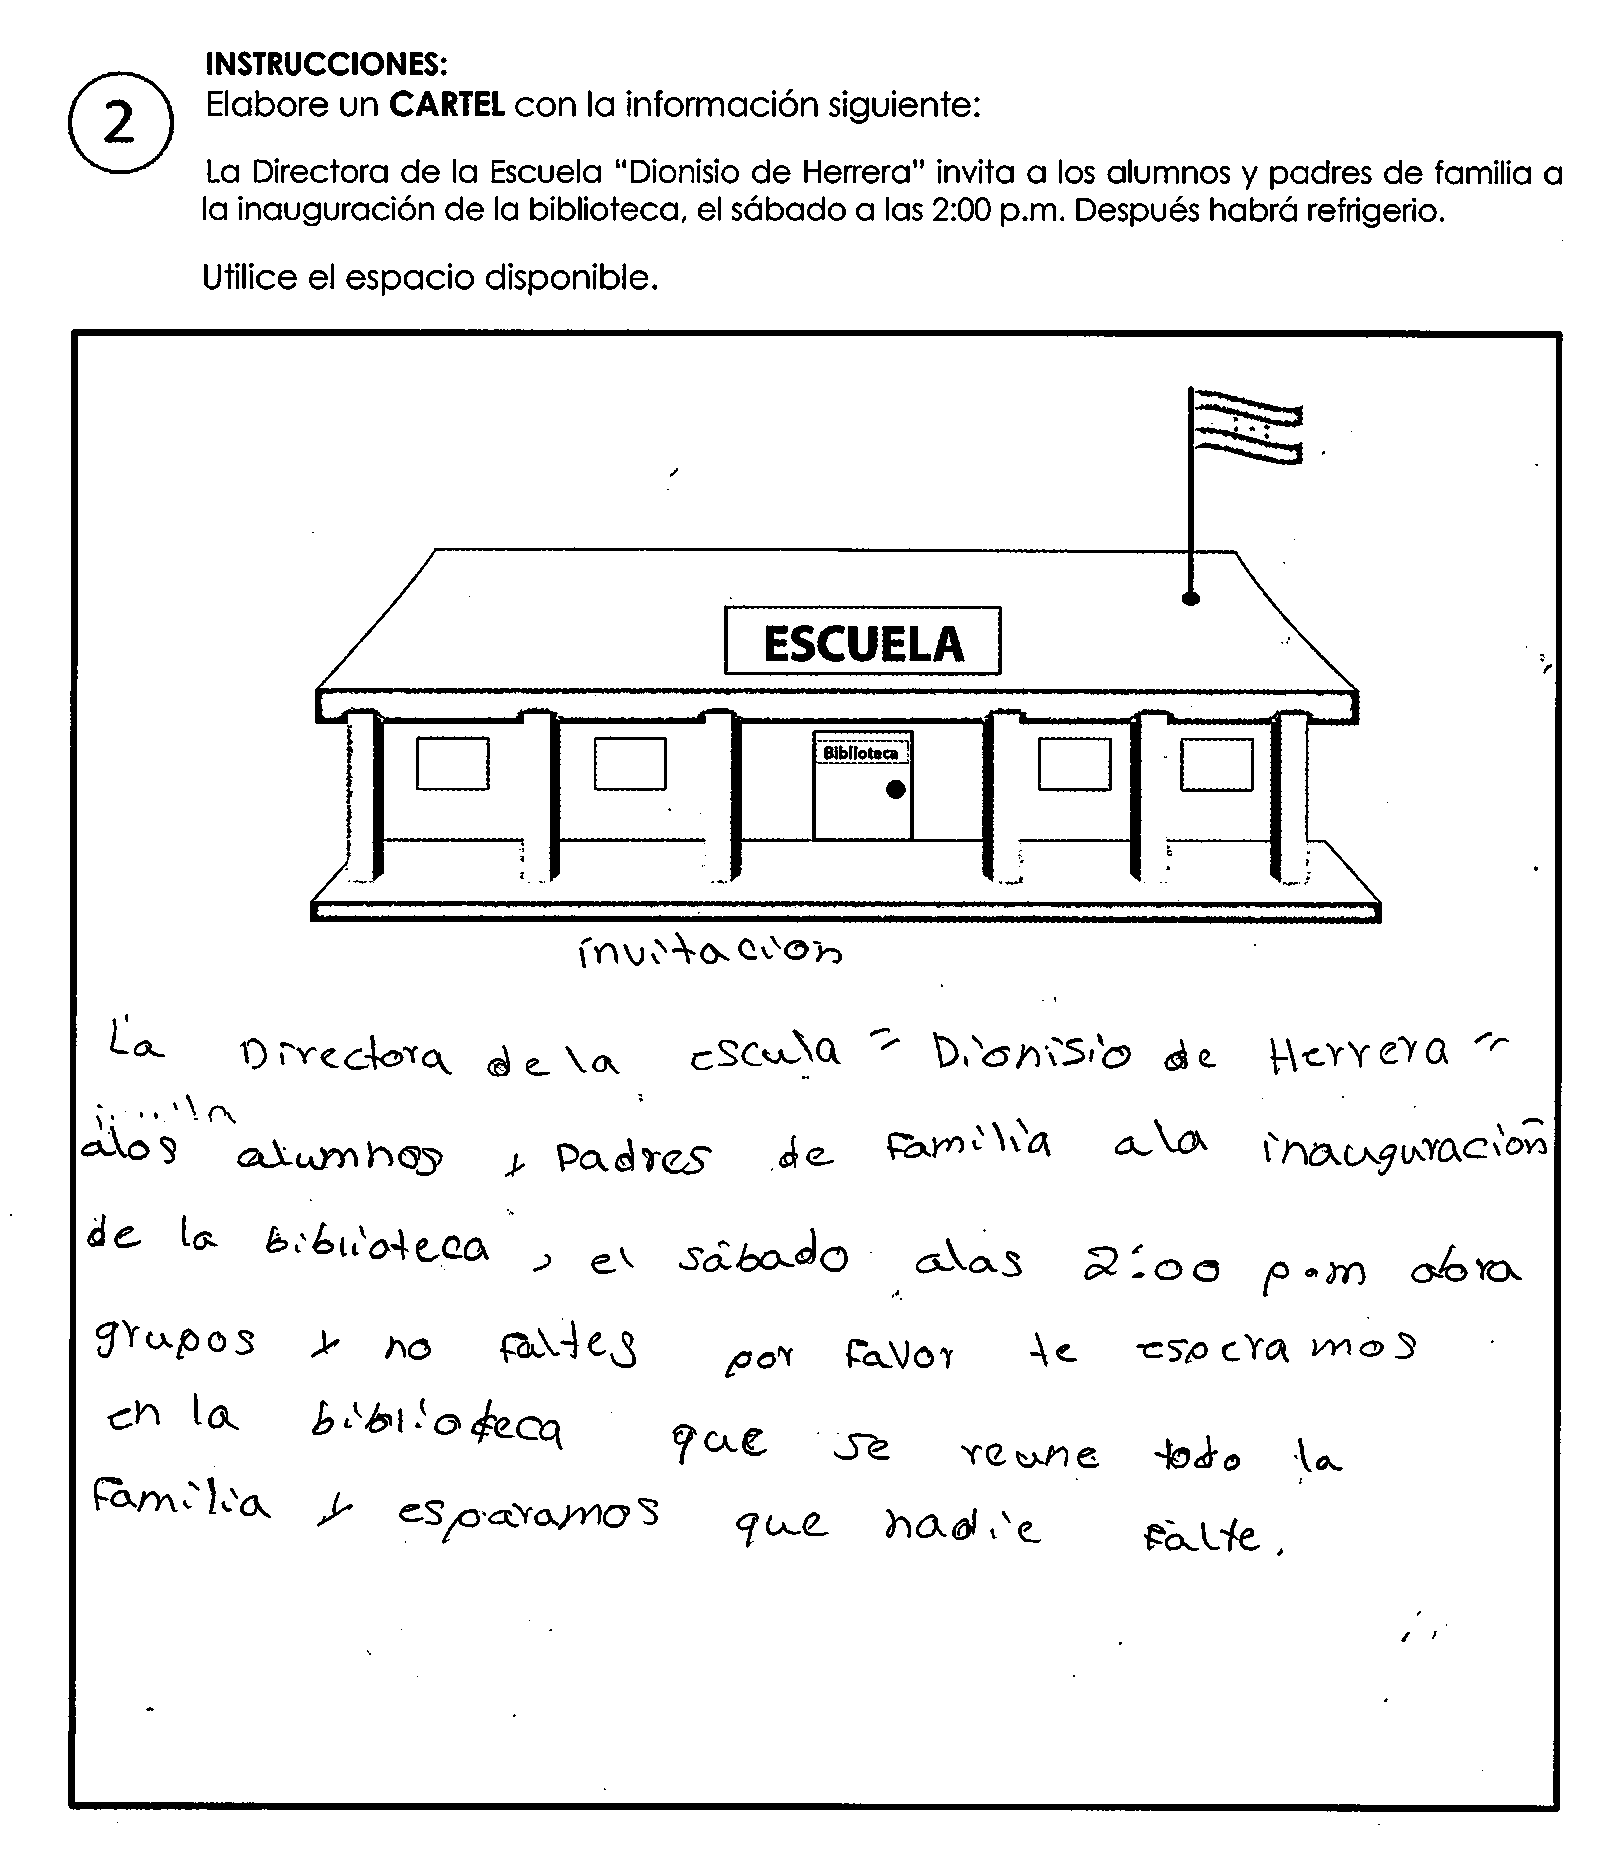 INSTRUCCIONES:
2
Elabore un CARTEL con la información siguiente:
La Directora de la Escuela "Dionisio de Herrera" invita a los alumnos y padres de familia a
la inauguración de la biblioteca, el sábado a las 2:00 p.m. Después habrá refrigerio.
Utilice el espacio disponible.
ESCUELA
Biblioteca
invitacion
La Directora de la escula " Dionisio de Herrera "
alos alumnos y Padres de Familia ala inauguración
de la biblioteca, el sábado alas 2:00 p.m abra
grupos y no faltes por favor te esperamos
en la biblioteca que se reune todo la
Familia y esparamos que nadie falte.